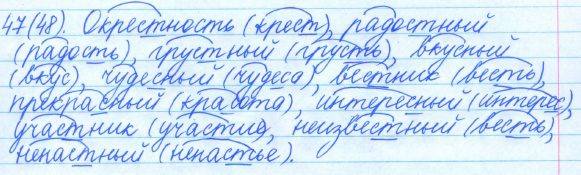 47(48). Окрестность (крест), радостный
(радость), грустный (грусть), вкусный
(вкус), чудесный (чудеса), вестник (весть),
прекрасный (красота), интересный (интерес),
участник (участие), неизвестный (весть),
ненастный (ненастье).